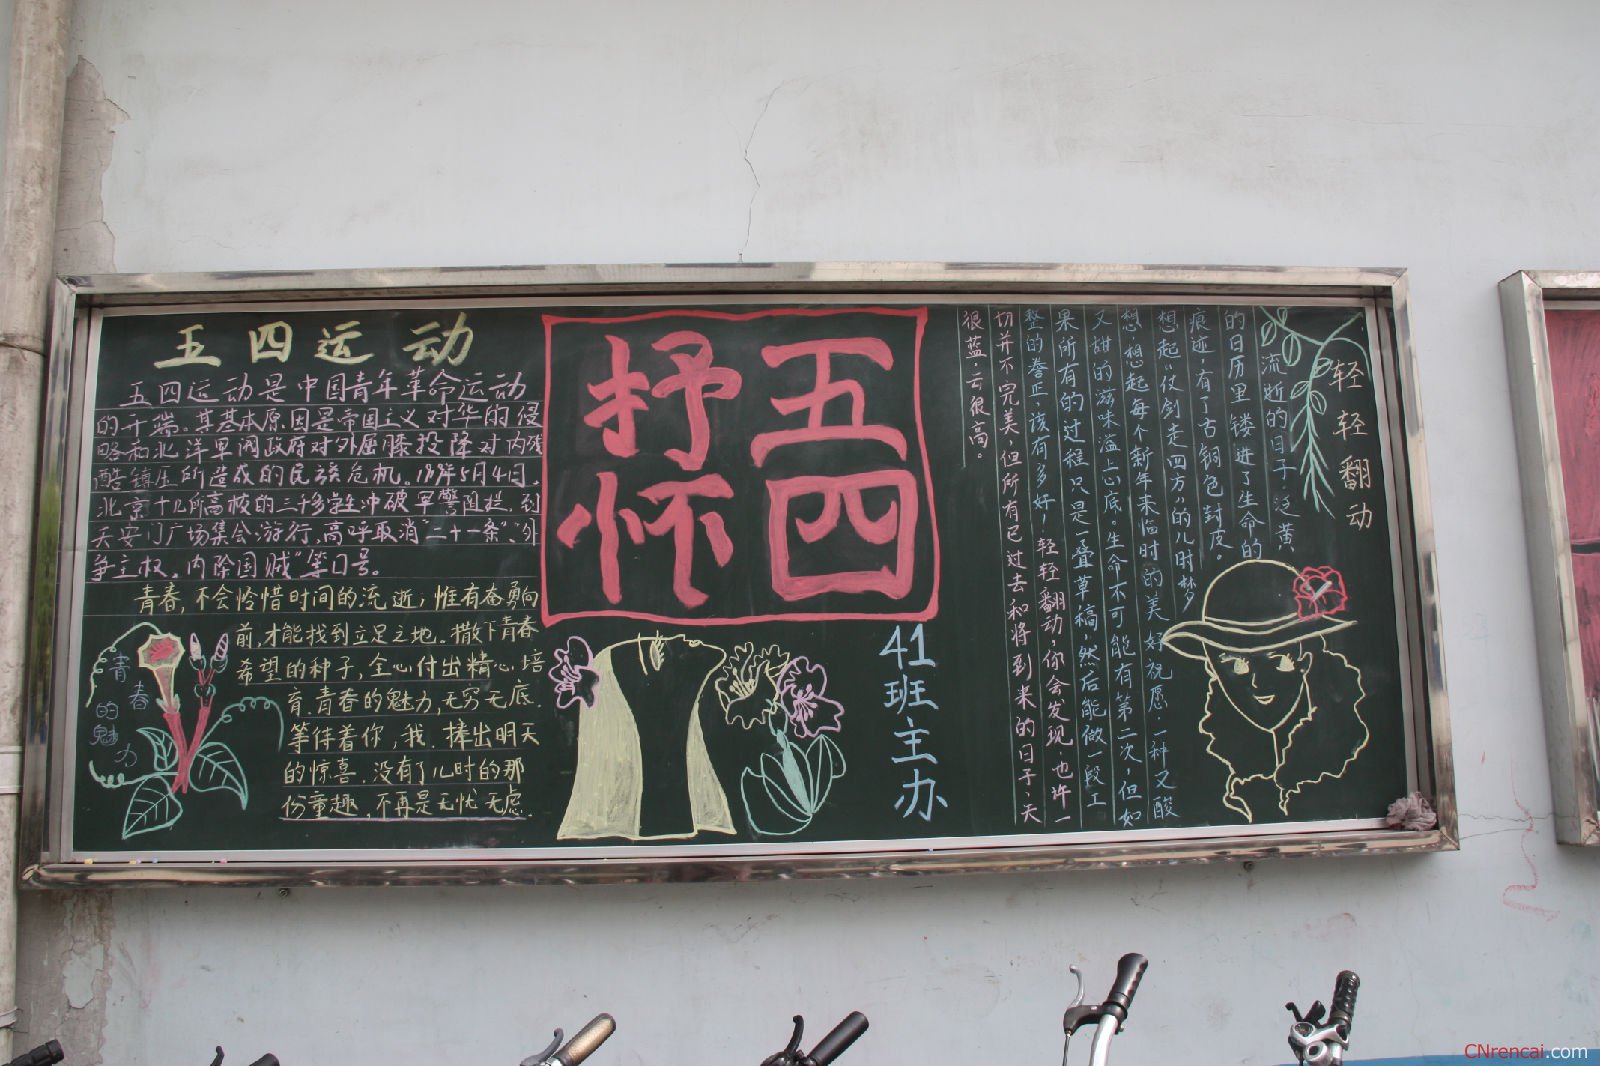 五四运动
五四运动是中国青年革命运动
的开端。其基本原因是帝国主义对华的侵
略和北洋军阀政府对外屈膝投降对内残
酷镇压所造成的民族危机。1919年5月4日,
北京十几所高校的三千多学生冲破军警阻挠,到
天安门广场集会、游行,高呼取消"二十一条"、"外
争主权,内除国贼"等口号。
青春,不会怜惜时间的流逝,惟有奋勇向
前,才能找到立足之地。撒下青春
希望的种子,全心付出精心培
育,青春的魅力,无穷无底.
等待着你,我.捧出明天
的惊喜.没有了儿时的那
份童趣,不再是无忧无虑.
青春
的魅力
五四
抒怀
41班主办
轻轻翻动
流逝的日子,泛黄
的日历里镂进了生命的
痕迹,有了古铜色封皮。
想起"仗剑走四方"的儿时梦
想,想起每个新年来临时的美好祝愿.一种又酸
又甜的滋味溢上心底。生命不可能有第二次,但如
果所有的过程只是一叠草稿,然后能做一段工
整的誊正,该有多好,轻轻翻动,你会发现,也许一
切并不完美,但所有已过去和将到来的日子,天
很蓝,云很高。
CNrencai.com